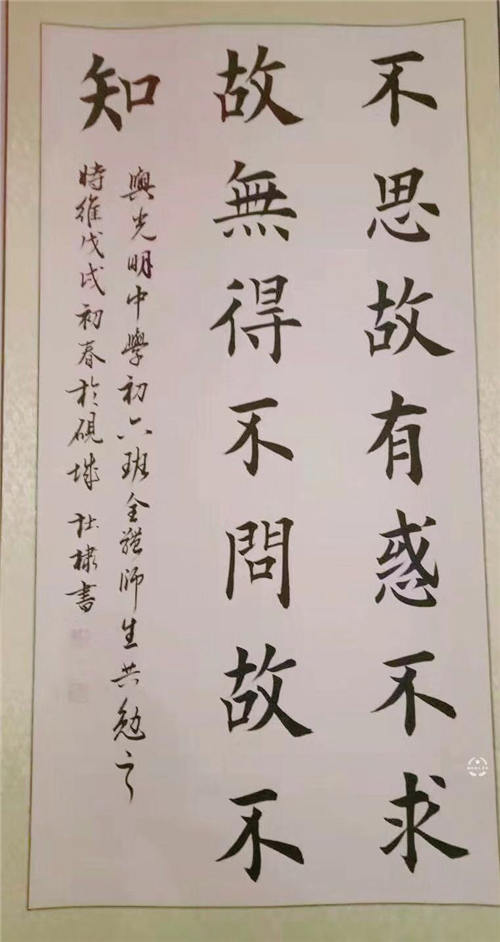 不思故有惑不求
故無得不問故不
知
與光明中學初六班全體師生共勉之
時維戊戌初春於硯城 杜棣書